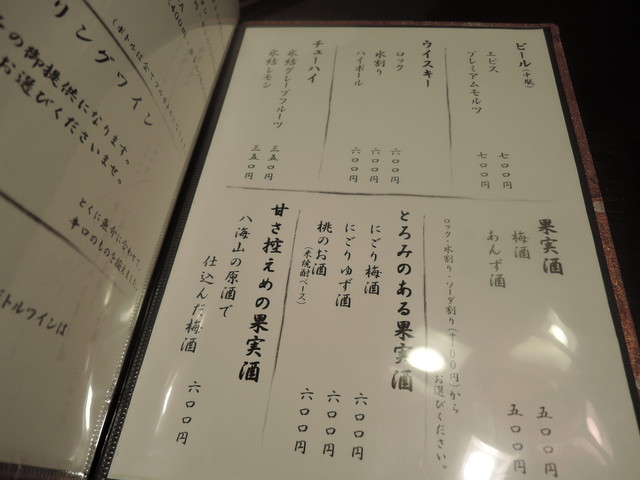 ビール(中瓶)
エビス 七〇〇円
プレミアムモルツ 七〇〇円
ウイスキー
ロック 六〇〇円
水割り 六〇〇円
ハイボール 六〇〇円
チューハイ
氷結グレープフルーツ 三五〇円
氷結レモン 三五〇円
果実酒
梅酒 五〇〇円
あんず酒 五〇〇円
ロック・水割り・ソーダ割り(+100円)から
お選びください。
とろみのある果実酒
にごり梅酒 六〇〇円
にごりゆず酒 六〇〇円
桃のお酒 六〇〇円
(米焼酎ベース)
甘さ控えめの果実酒
八海山の原酒で
仕込んだ梅酒 六〇〇円
リングワイン
の御提供になります。
お選びくださいませ。
とくに
辛口のものを
ボトルワインは